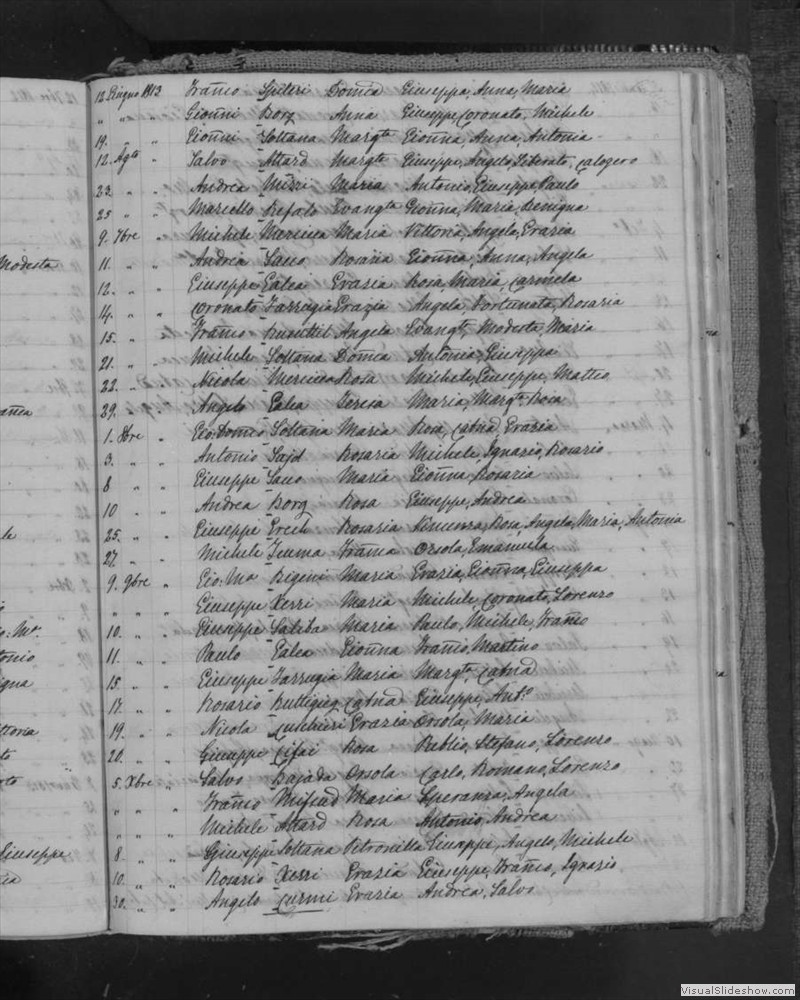 12 Giugno 1813 Franco Spiteri Domca Giuseppa, Anna, Maria
" " " Gionni Borg Anna Giuseppe, Coronato, Michele
19. " Gionni Soltana Margta Gionna, Anna, Antonia
12. Agto " Salvo Attard Margta Giuseppe, Angelo, Liberato, Calogero
22 " " Andrea Mizzi Maria Antonio, Giuseppe, Paulo
25 " " Marcello Refalo Evangta Gionna, Maria, Benigna
9. 7bre " Michele Mercieca Maria Vittoria, Angela, Grazia
Modesta 11. " " Andrea Saco Rosaria Gionna, Anna, Angela
12. " " Giuseppe Galea Grazia Rosa, Maria, Carmela
14. " " Coronato Farrugia Grazia Angela, Fortunata, Rosaria
15. " " Franco Angela Evangta, Modesta, Maria
21. " " Michele Soltana Domca Antonia, Giuseppa
22. " " Nicola Mercieca Rosa Michele, Giuseppe, Matteo
29. " " Angelo Galea Teresa Maria, Margta, Rosa
1. 8bre " Gio:Domco Soltana Maria Rosa, Catna, Grazia
3. " " Antonio Said Rosaria Michele, Ignazio, Rosario
8 " " Giuseppe Saco Maria Gionna, Rosaria
10 " " Andrea Borg Rosa Giuseppe, Andrea
25. " " Giuseppe Grech Rosaria Vincenza, Rosa, Angela, Maria, Antonia
27. " " Michele Franca Orsola, Emanuela
9. 9bre " Gio:Ma Rigini Maria Grazia, Gionna, Giuseppa
" " Giuseppe Xerri Maria Michele, Coronato, Lorenzo
10. " " Giuseppe Saliba Maria Paulo, Michele, Franco
11. " " Paulo Galea Gionna Franco, Martino
15. " " Giuseppe Farrugia Maria Margta, Catna
17. " " Rosario Buttigieg Catna Giuseppe, Anto
19. " " Nicola Cuschieri Grazia Orsola, Maria
20. " " Giuseppe Cifai Rosa Publio, Stefano, Lorenzo
5. Xbre " Salvo Bajada Orsola Carlo, Romano, Lorenzo
" " " Franco Mifsud Maria Speranza, Angela
" " " Michele Attard Rosa Antonio, Andrea
Giuseppe 8. " " Giuseppe Soltana Petronilla Giuseppe, Angelo, Michele
10. " " Rosario Xerri Grazia Giuseppe, Franco, Ignazio
30. " " Angelo Curmi Grazia Andrea, Salvo
VisualSlideshow.com